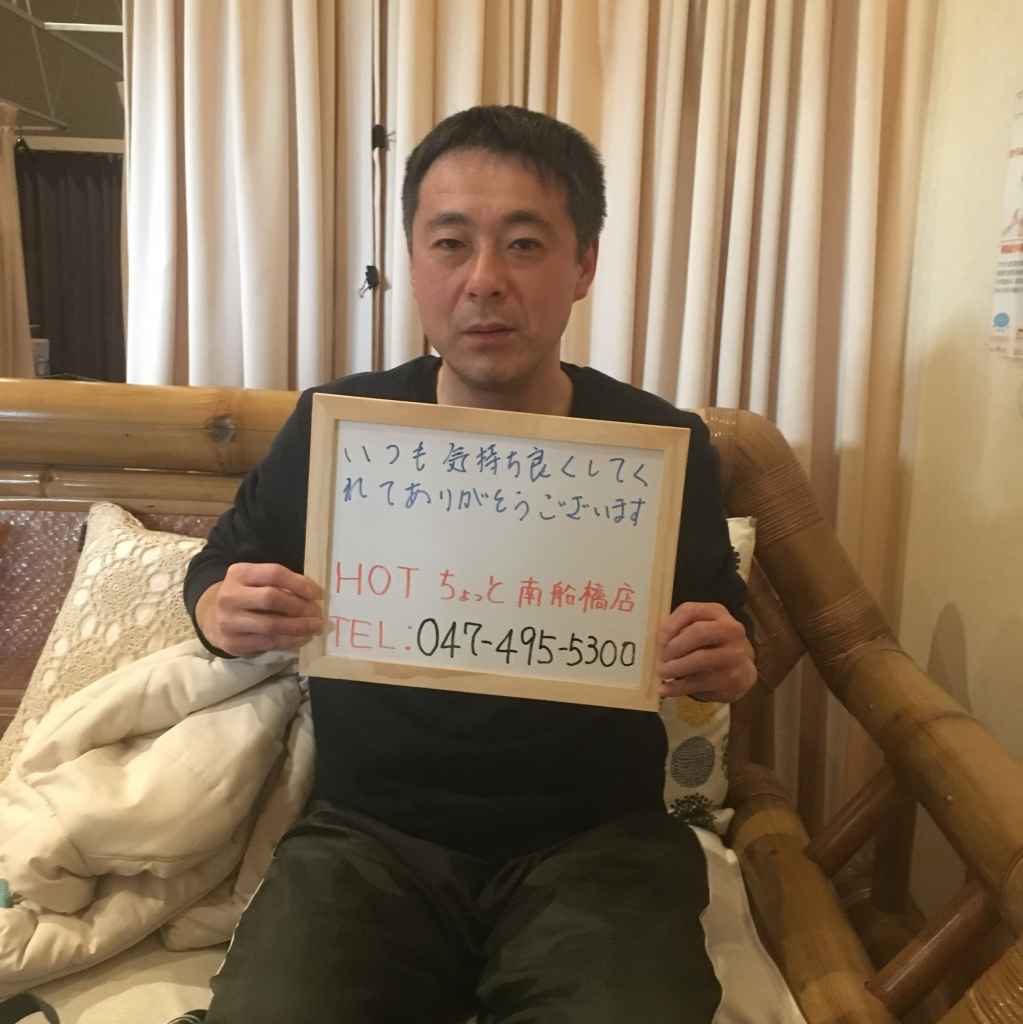 いつも気持ち良くしてく
れてありがとうございます
HOT ちょっと 南船橋店
TEL:047-495-5300